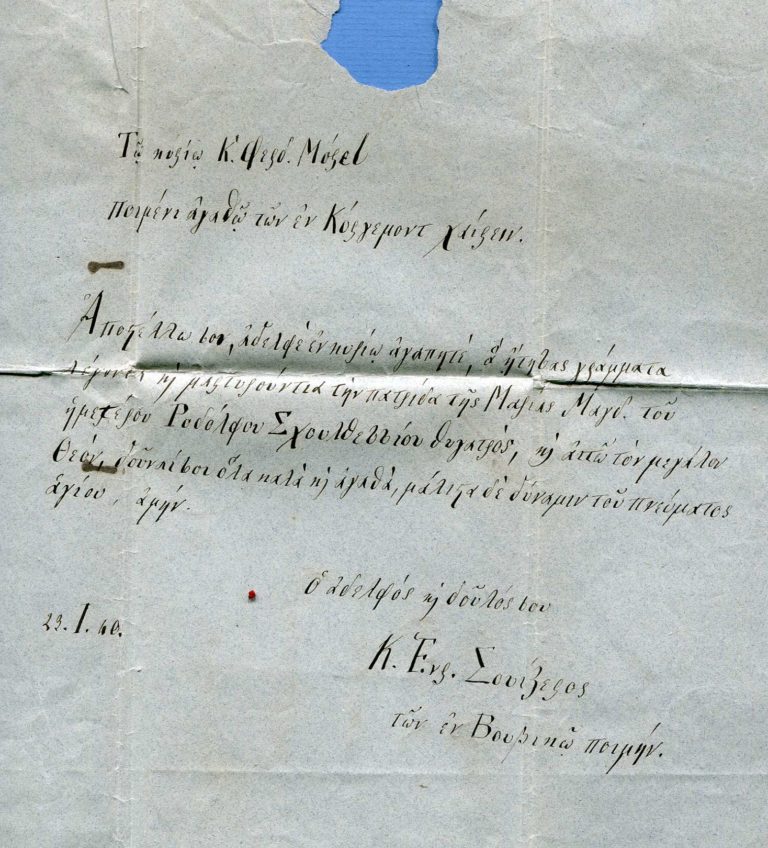 Τῷ κυρίῳ Κ. Φερδ. Μόρel
ποιμένι ἀγαθῷ τῶν ἐν Κόργεμοντ χαίρειν.
Ἀποστέλλω σοι, ἀδελφὲ ἐν κυρίῳ ἀγαπητέ, ἃ ᾔτησας γράμματα
κ̀ μαρτυροῦντα τὴν πατρίδα τῆς Μαρίας Μαγδ. τοῦ
ἡμετέρου Ροδόλφου Σχουλθεσσίου θυγατρός, κ̀ αἰτῶ τὸν μεγάλον
Θεόν, δοῦναί σοι ὅλα καλὰ κ̀ ἀγαθά, μάλιστα δὲ δύναμιν τοῦ πνεύματος
ἁγίου, ἀμήν.
ὁ ἀδελφός κ̀ δοῦλός σου
23. I. 40.
Κ. Ἑνρ. Σουίζερος
τῶν ἐν Βουβικῷ ποιμήν.